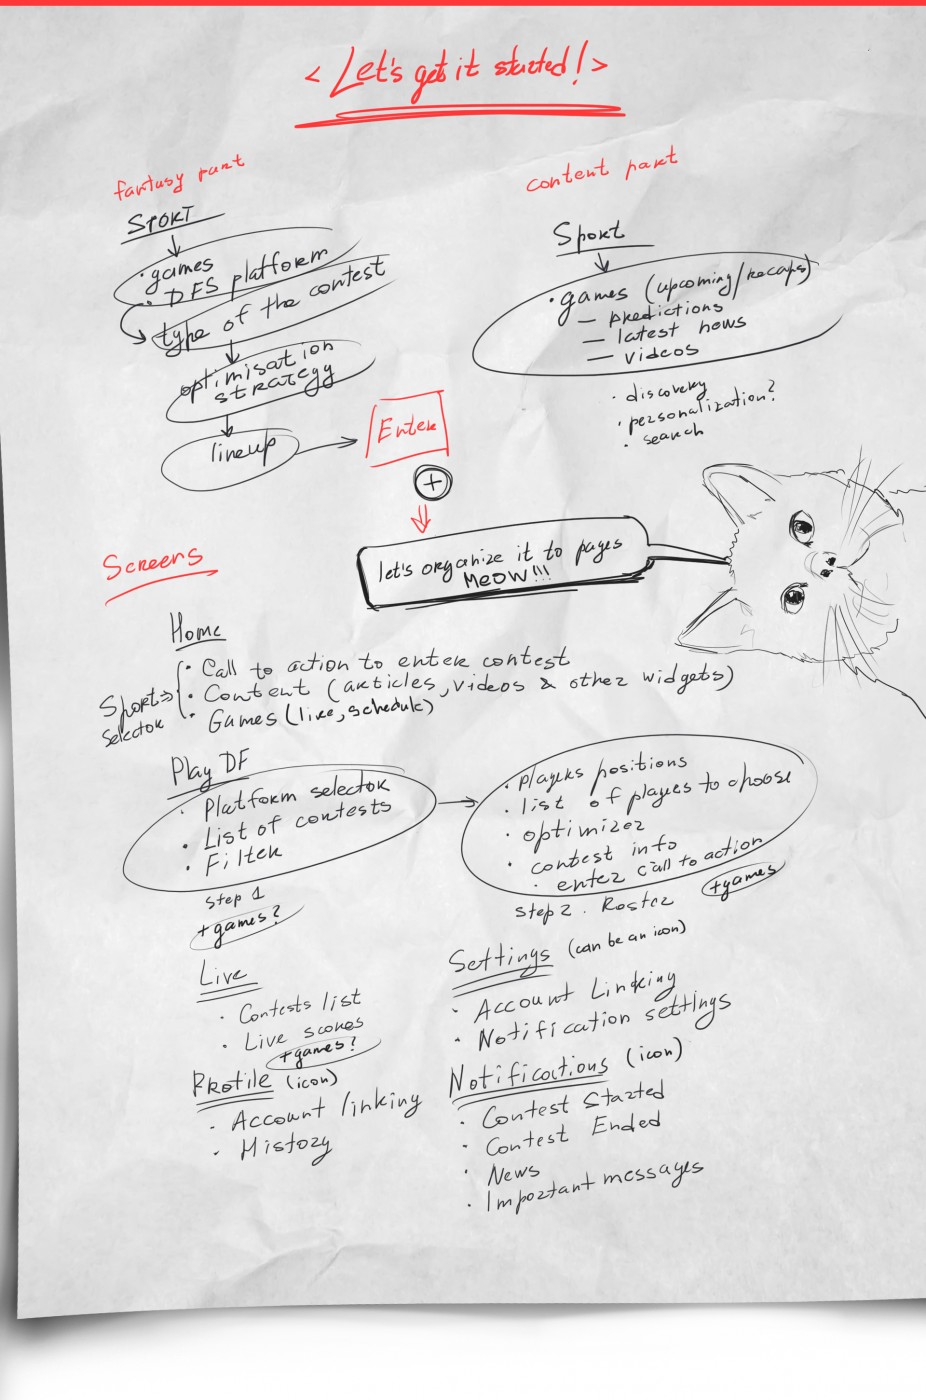 < Let's get it started! >
fantasy part
SPORT
· games
· DFS platform
type of the contest
optimisation
strategy
lineup
Enter
content part
Sport
· games (upcoming/recaps)
— predictions
— latest news
— videos
· discovery
· personalization?
· search
+
let's organize it to pages
MEOW!!!
Screens
Home
Sport
selector
· Call to action to enter contest
· Content (articles, videos & other widgets)
· Games (live, schedule)
Play DF
· Platform selector
· List of contests
· Filter
step 1
+games?
· players positions
· list of players to choose
· optimizer
· contest info
· enter call to action
step 2. Roster
+games
Live
· Contests list
· Live scores
+games?
Profile (icon)
· Account linking
· History
Settings (can be an icon)
· Account Linking
· Notification settings
Notifications (icon)
· Contest Started
· Contest Ended
· News
· Important messages